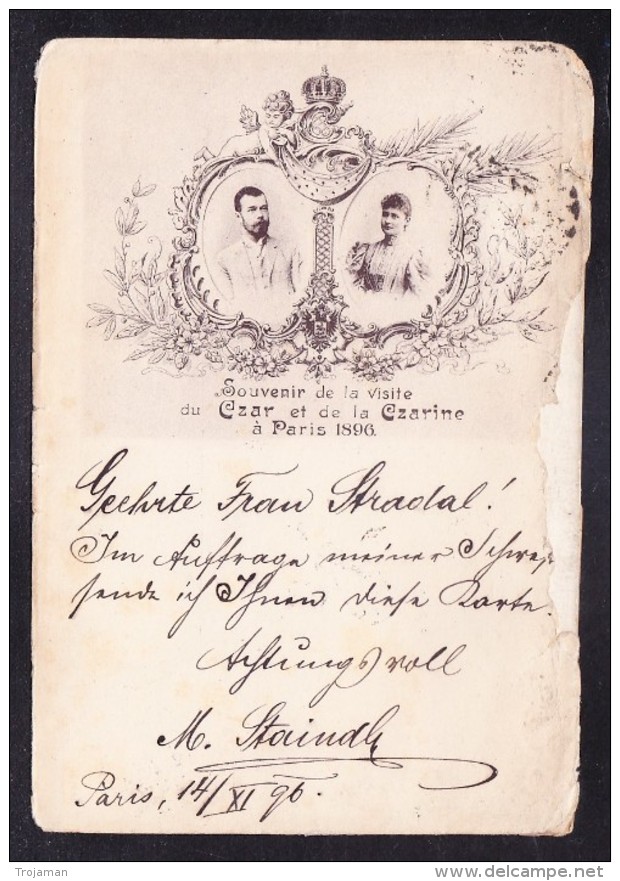 Souvenir de la visite
du Czar et de la Czarine
à Paris 1896.
Geehrte Frau Stradal!
Im Auftrage meiner Schwest
sende ich Ihnen diese Karte.
Achtungsvoll
M. Staindl
Paris, 14/XI 96.
Trojaman
delcampe.net